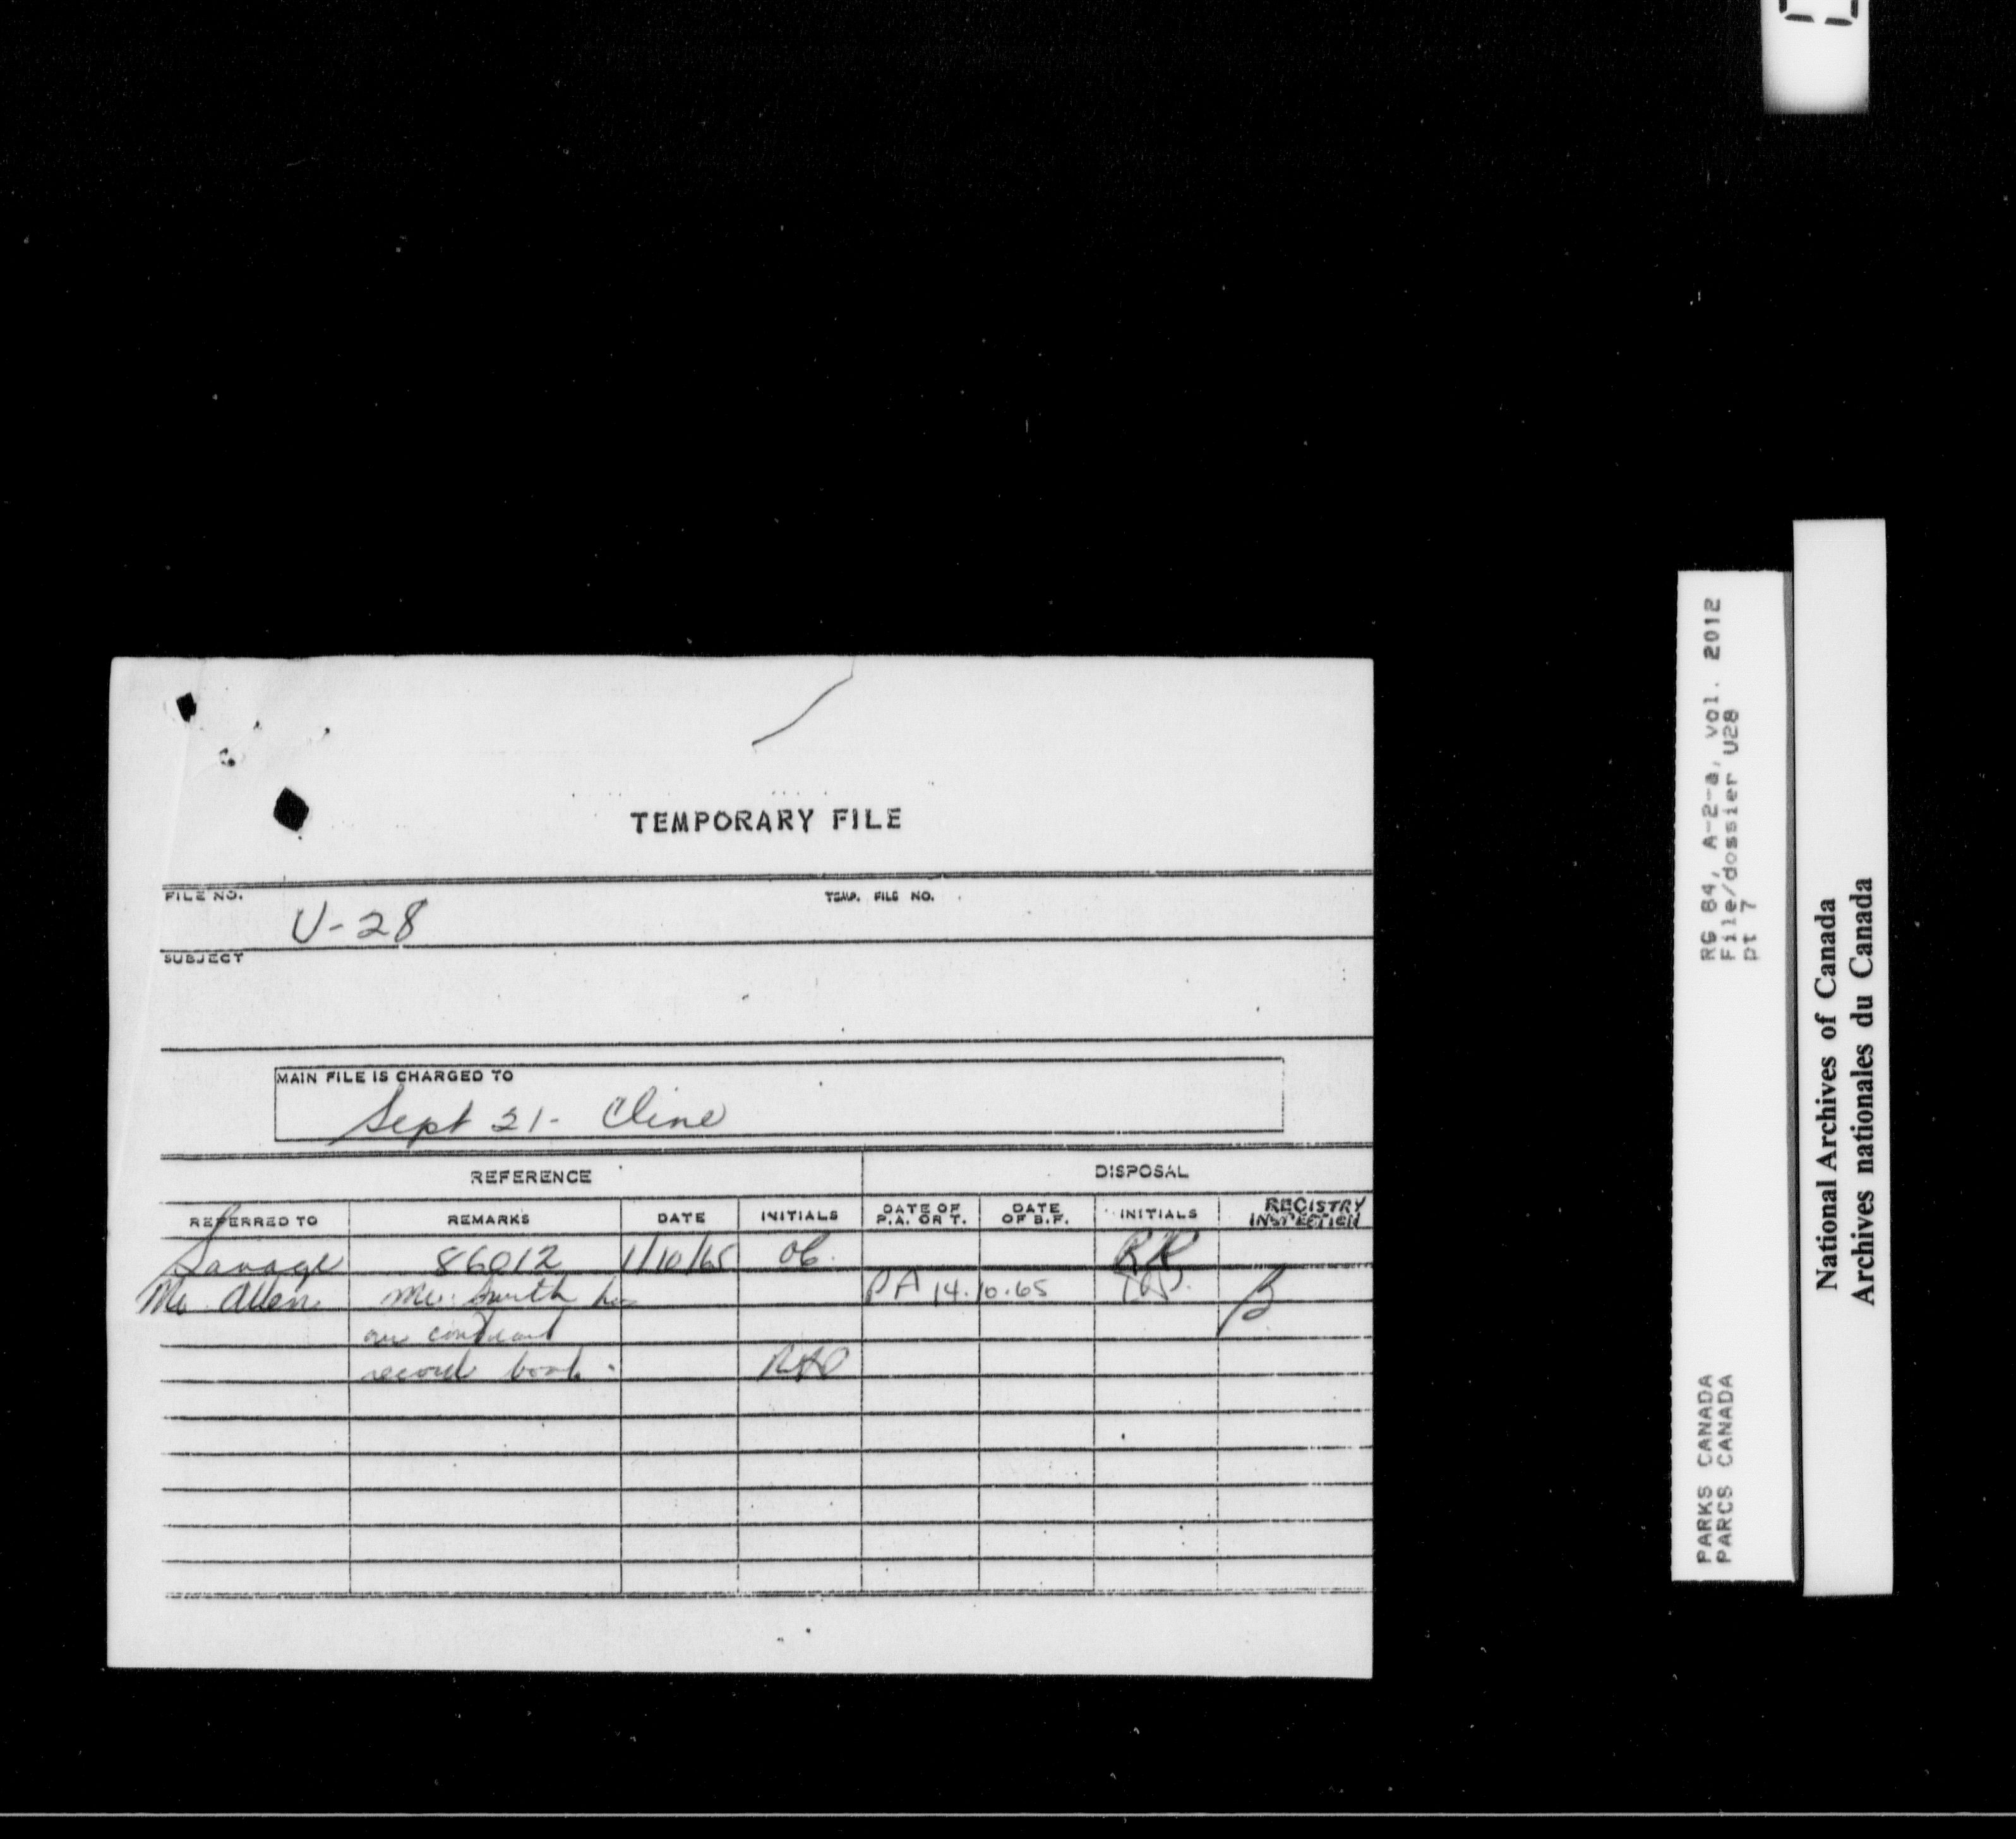 TEMPORARY FILE
FILE NO. U-28 TEMP. FILE NO.
SUBJECT
MAIN FILE IS CHARGED TO
Sept 21- Cline
REFERENCE DISPOSAL
REFERRED TO REMARKS DATE INITIALS DATE OF P.A. OR T. DATE OF B.F. INITIALS REGISTRY INSPECTION
Savage 86012 1/10/65 RR
Mr. Allen Mr. Smith has PA 14.10.65
our contract
record book.
RG 84, A-2-a, vol. 2012
File/dossier U28
pt 7
PARKS CANADA
PARCS CANADA
National Archives of Canada
Archives nationales du Canada